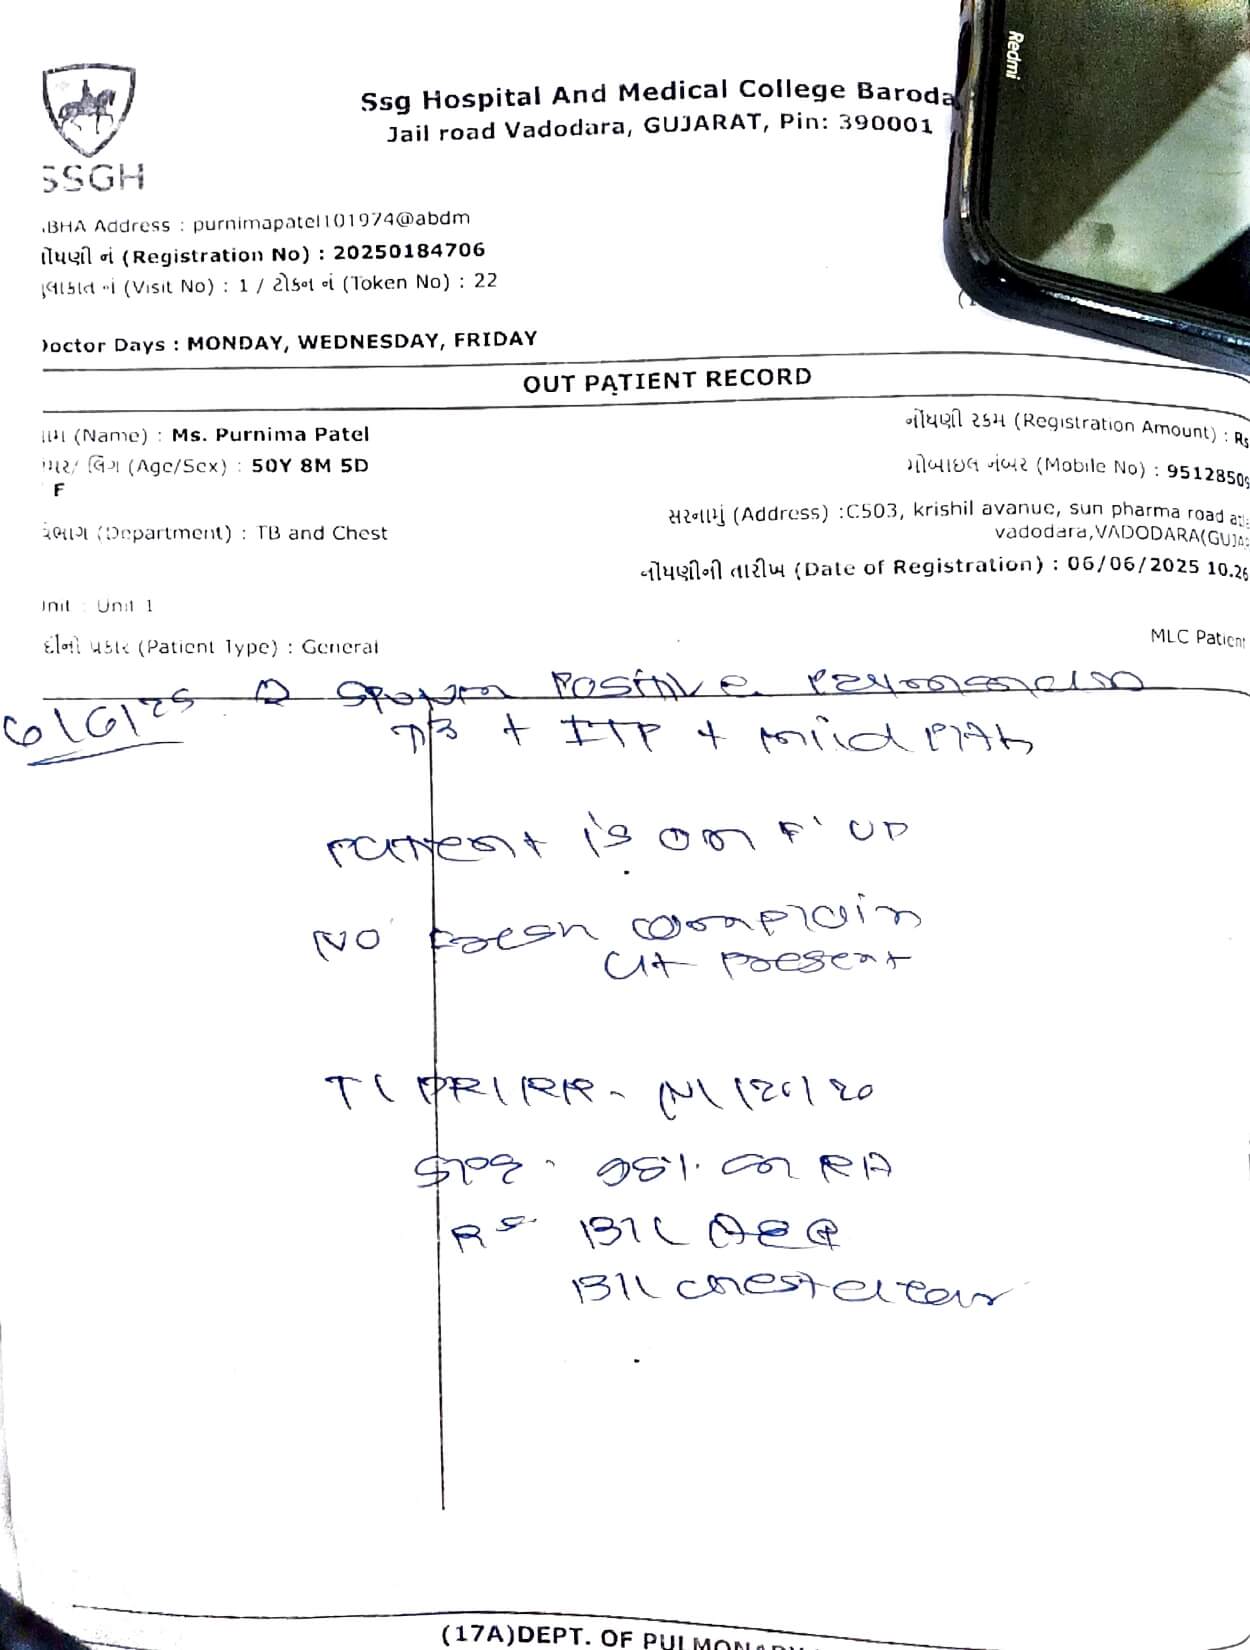 SSGH
Ssg Hospital And Medical College Baroda
Jail road Vadodara, GUJARAT, Pin: 390001
Redmi
BHA Address : purnimapatel101974@abdm
(Registration No) : 20250184706
(Visit No) : 1 / ટોકન નં (Token No) : 22
octor Days : MONDAY, WEDNESDAY, FRIDAY
OUT PATIENT RECORD
નોંધણી રકમ (Registration Amount) : Rs
(Name) : Ms. Purnima Patel
મોબાઇલ નંબર (Mobile No) : 9512850
લિંગ (Age/Sex) : 50Y 8M 5D
F
સરનામું (Address) :C503, krishil avanue, sun pharma road
vadodara,VADODARA(GUJA
(Department) : TB and Chest
નોંધણીની તારીખ (Date of Registration) : 06/06/2025 10.26
Unit : Unit 1
(Patient Type) : General
MLC Patient
6/6/25 Sputum Positive
TB + ITP + mild
Patient is on F' UP
NO Fresh complain
at present
T/PR/RR - N/120/20
98% on RA
RS B/L AE
B/L chest clear
(17A)DEPT. OF PULMONARY